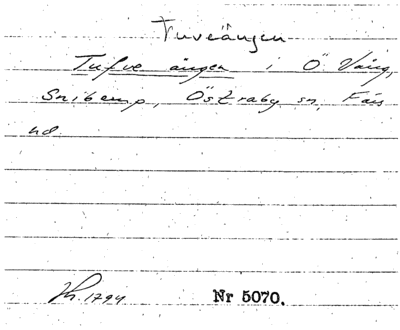 Tuveängen
Tufve ängen i Ö Vång,
Snibemp, Östraby sn, Färs
hd.
Kh. 1794 Nr 5070.